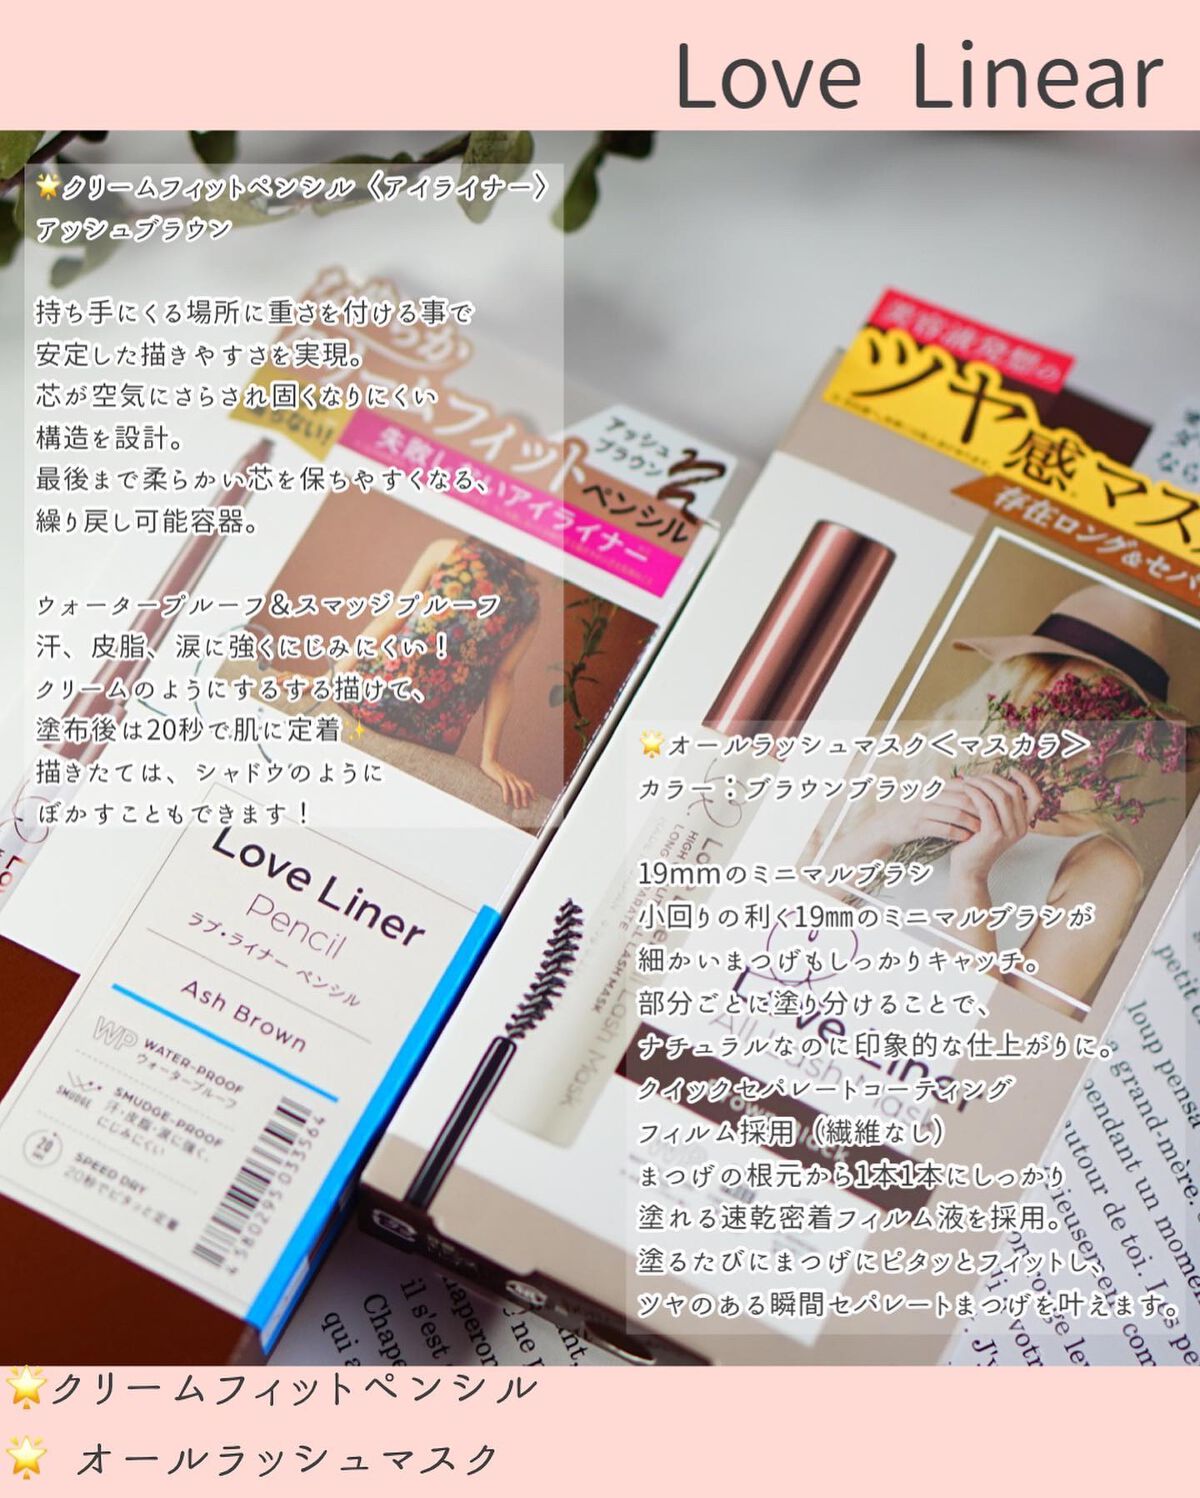 Love Linear
🌟クリームフィットペンシル〈アイライナー〉
アッシュブラウン
持ち手にくる場所に重さを付ける事で
安定した描きやすさを実現。
芯が空気にさらされ固くなりにくい
構造を設計。
最後まで柔らかい芯を保ちやすくなる、
繰り戻し可能容器。
ウォータープルーフ&スマッジプルーフ
汗、皮脂、涙に強くにじみにくい！
クリームのようにするする描けて、
塗布後は20秒で肌に定着✨
描きたては、シャドウのように
ぼかすこともできます！
アッシュ
ブラウン
フィット
ペンシル
アイライナー
Love Liner
Pencil
ラブ・ライナー ペンシル
Ash Brown
WP WATER-PROOF
ウォータープルーフ
SMUDGE
SMUDGE-PROOF
汗・皮脂・涙に強く、
にじみにくい
20
SPEED DRY
20秒でピタッと定着
4580295033564
美容液発想の
ツヤ感マス
存在ロング&セパ
🌟オールラッシュマスク＜マスカラ＞
カラー：ブラウンブラック
19mmのミニマルブラシ
小回りの利く19㎜のミニマルブラシが
細かいまつげもしっかりキャッチ。
部分ごとに塗り分けることで、
ナチュラルなのに印象的な仕上がりに。
クイックセパレートコーティング
フィルム採用（繊維なし）
まつげの根元から1本1本にしっかり
塗れる速乾密着フィルム液を採用。
塗るたびにまつげにピタッとフィットし、
ツヤのある瞬間セパレートまつげを叶えます。
petit
loup pensa
a grand-mère.
pendant un mome
autour de toi.
il s'est
Chape
qui a
🌟クリームフィットペンシル
🌟 オールラッシュマスク